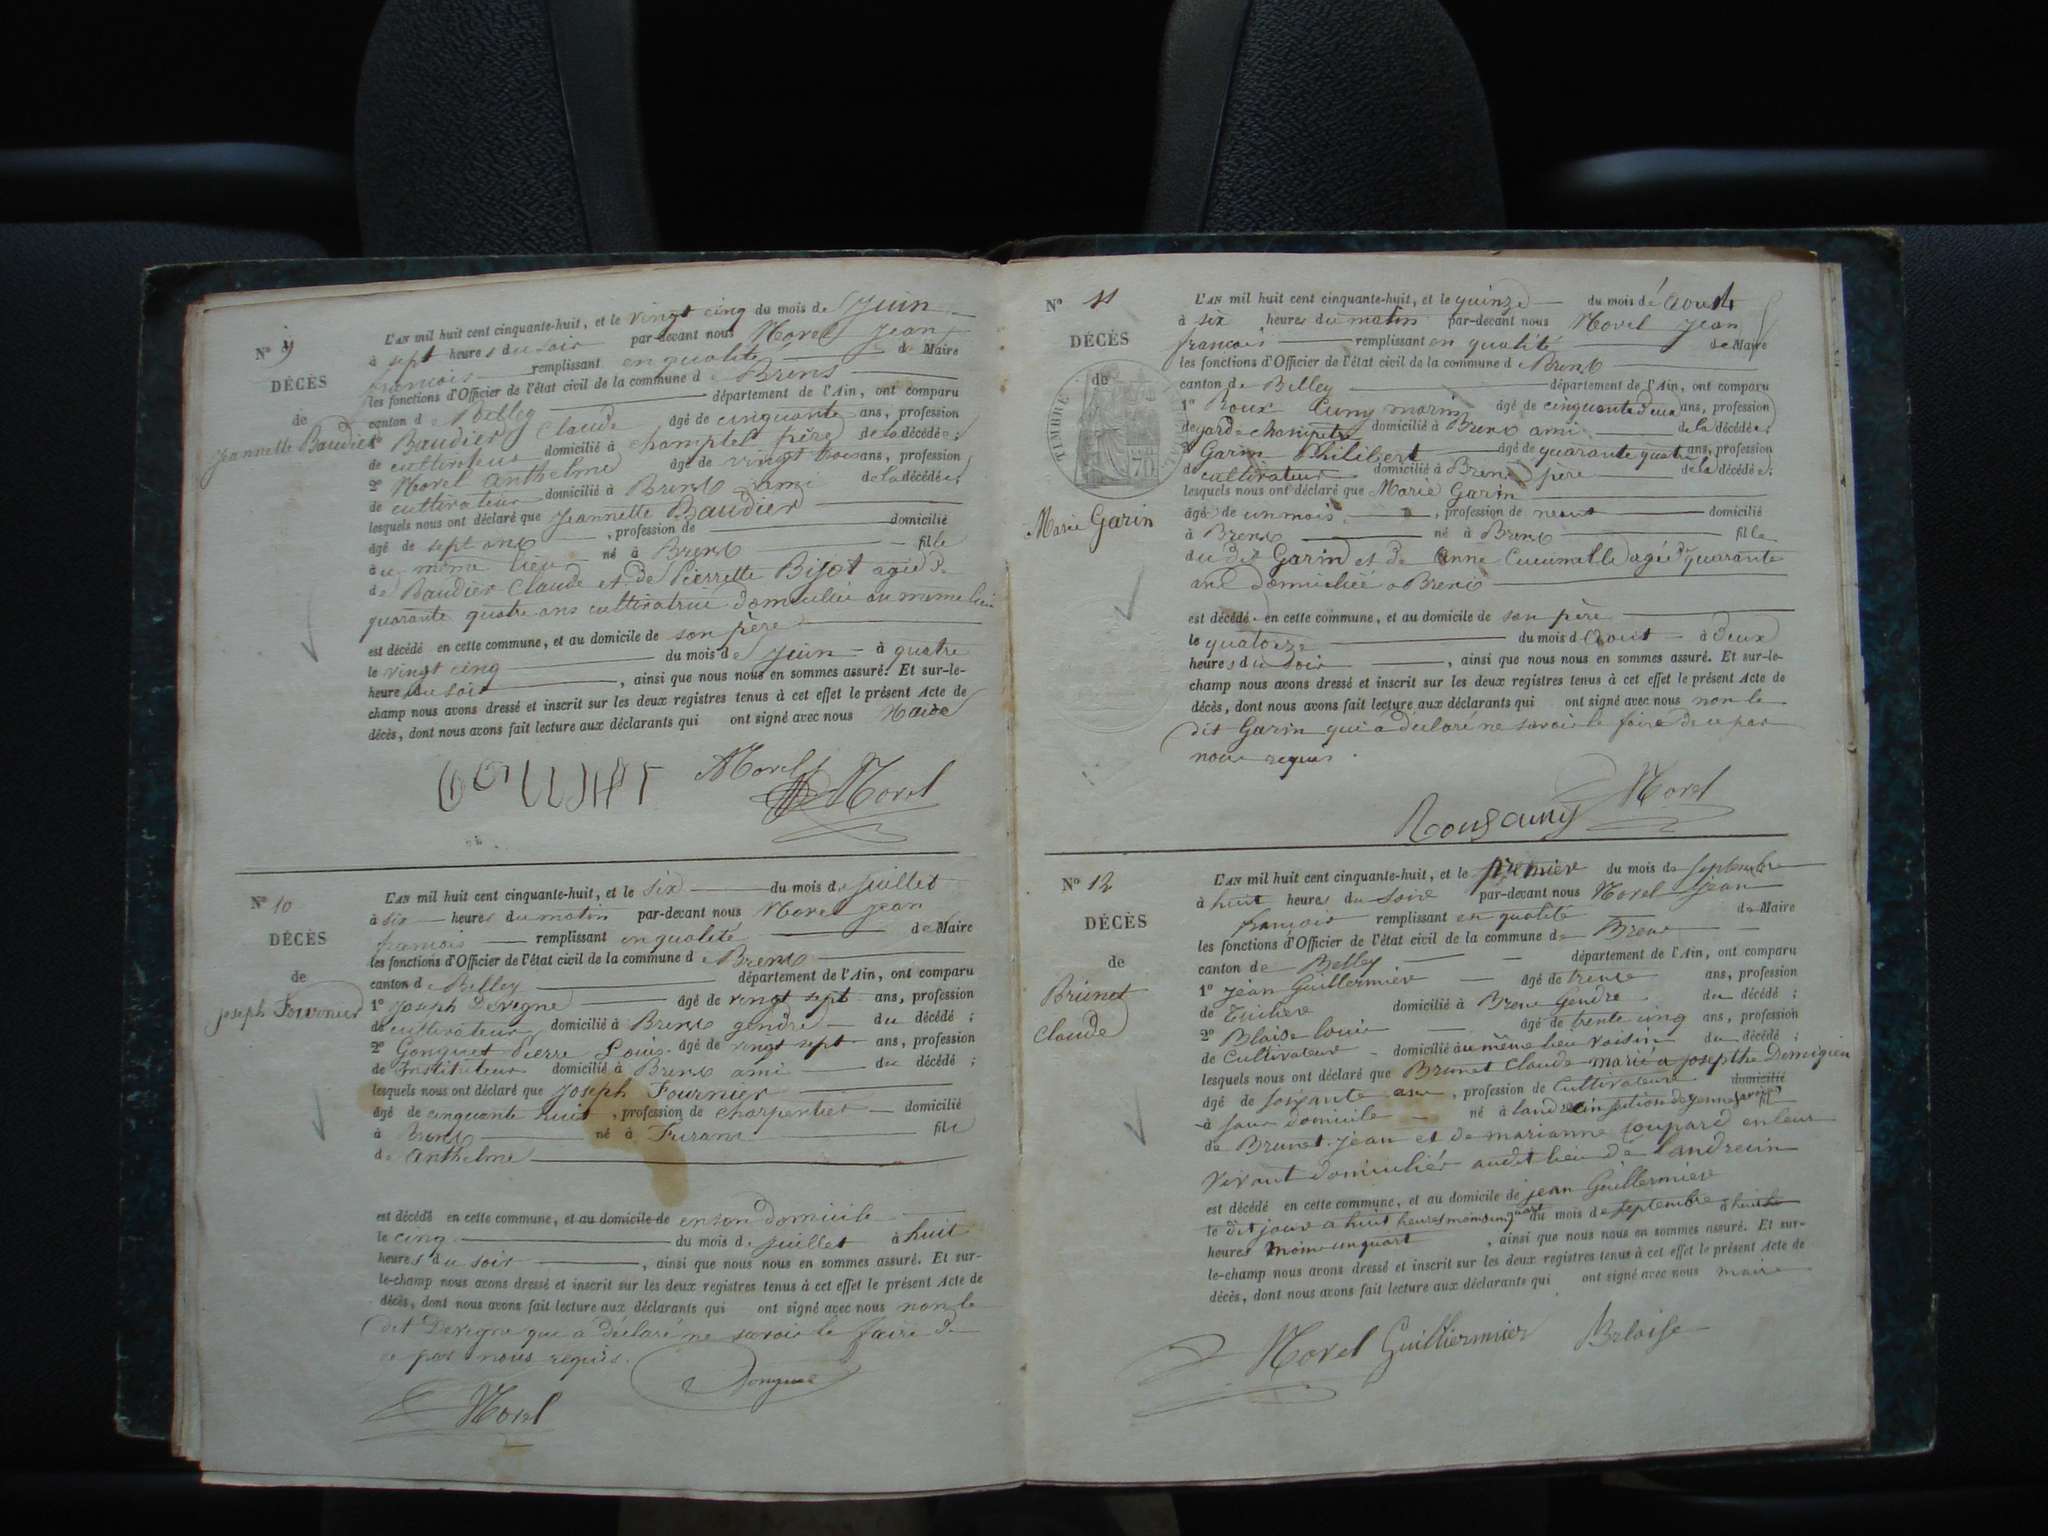 N° 9
DÉCÈS
de
Jeannette Baudier
L'AN mil huit cent cinquante-huit, et le vingt cinq du mois de Juin
à sept heures du soir par-devant nous Morel Jean
francois remplissant en qualité de Maire
les fonctions d'Officier de l'état civil de la commune de Brens
canton de Belley département de l'Ain, ont comparu
1° Baudier Claude âgé de cinquante ans, profession
de cultivateur domicilié à Champtel père de la décédée;
2° Morel anthelme âgé de vingt trois ans, profession
de cultivateur domicilié à Brens ami de la décédée;
lesquels nous ont déclaré que Jeannette Baudier
âgé de sept ans, profession de domicilié
au même lieu né à Brens fille
de Baudier Claude et de Pierrette Bijot agée de
quarante quatre ans cultivatrice domiciliée au même lieu
est décédé en cette commune, et au domicile de son père
le vingt cinq du mois de Juin à quatre
heures du soir, ainsi que nous nous en sommes assuré. Et sur-le-
champ nous avons dressé et inscrit sur les deux registres tenus à cet effet le présent Acte de
décès, dont nous avons fait lecture aux déclarants qui ont signé avec nous Maire
AMorel Morel
N° 10
DÉCÈS
de
Joseph Fournier
L'AN mil huit cent cinquante-huit, et le six du mois de Juillet
à six heures du matin par-devant nous Morel Jean
francois remplissant en qualité de Maire
les fonctions d'Officier de l'état civil de la commune de Brens
canton de Belley département de l'Ain, ont comparu
1° Joseph Devigne âgé de vingt sept ans, profession
de cultivateur domicilié à Brens gendre du décédé;
2° Gonguet Pierre Louis âgé de vingt sept ans, profession
de Instituteur domicilié à Brens ami du décédé;
lesquels nous ont déclaré que Joseph Fournier
âgé de cinquante huit, profession de charpentier domicilié
à Brens né à Furans fils
de anthelme
est décédé en cette commune, et au domicile de en son domicile
le cinq du mois de Juillet à huit
heures du soir, ainsi que nous nous en sommes assuré. Et sur-
le-champ nous avons dressé et inscrit sur les deux registres tenus à cet effet le présent Acte de
décès, dont nous avons fait lecture aux déclarants qui ont signé avec nous non le
dit Devigne qui a déclaré ne savoir le faire de
ce par nous requis.
Gonguet
Morel
N° 11
DÉCÈS
de
TIMBRE
Marie Garin
L'AN mil huit cent cinquante-huit, et le quinze du mois de Aoust
à six heures du matin par-devant nous Morel Jean
francois remplissant en qualité de Maire
les fonctions d'Officier de l'état civil de la commune de Brens
canton de Belley département de l'Ain, ont comparu
1° Roux Cuny marin âgé de cinquante deux ans, profession
de garde champetre domicilié à Brens ami de la décédée;
2° Garin Philibert âgé de quarante quatre ans, profession
de cultivateur domicilié à Brens père de la décédée;
lesquels nous ont déclaré que Marie Garin
âgé de un mois, profession de neant domicilié
à Brens né à Brens fille
du dit Garin et de Anne agée de quarante
ans domiciliée a Brens
est décédé en cette commune, et au domicile de son père
le quatorze du mois d Aout à deux
heures du soir, ainsi que nous nous en sommes assuré. Et sur-le-
champ nous avons dressé et inscrit sur les deux registres tenus à cet effet le présent Acte de
décès, dont nous avons fait lecture aux déclarants qui ont signé avec nous non le
dit Garin qui a déclaré ne savoir le faire de ce par
nous requis.
Morel
N° 12
DÉCÈS
de
Brunet
Claude
L'AN mil huit cent cinquante-huit, et le premier du mois de Septembre
à huit heures du Soire par-devant nous Morel Jean
françois remplissant en qualité de Maire
les fonctions d'Officier de l'état civil de la commune de Brens
canton de Belley département de l'Ain, ont comparu
1° Jean Guillermier âgé de trente ans, profession
de domicilié à Brens Gendre du décédé;
2° Blaise louis âgé de trente cinq ans, profession
de Cultivateur domicilié au même lieu voisin du décédé;
lesquels nous ont déclaré que Brunet Claude marié a Josephe
âgé de soixante ans, profession de Cultivateur domicilié
à sans domicile né à
de Brunet Jean et de marianne en leur
vivant domiciliés audit lieu de Landrecin
est décédé en cette commune, et au domicile de jean Guillermier
le dit jour a huit heures moins un quart du mois de septembre à huit
heures moins un quart, ainsi que nous nous en sommes assuré. Et sur-
le-champ nous avons dressé et inscrit sur les deux registres tenus à cet effet le présent Acte de
décès, dont nous avons fait lecture aux déclarants qui ont signé avec nous maire
Morel Guilliermier Belaise